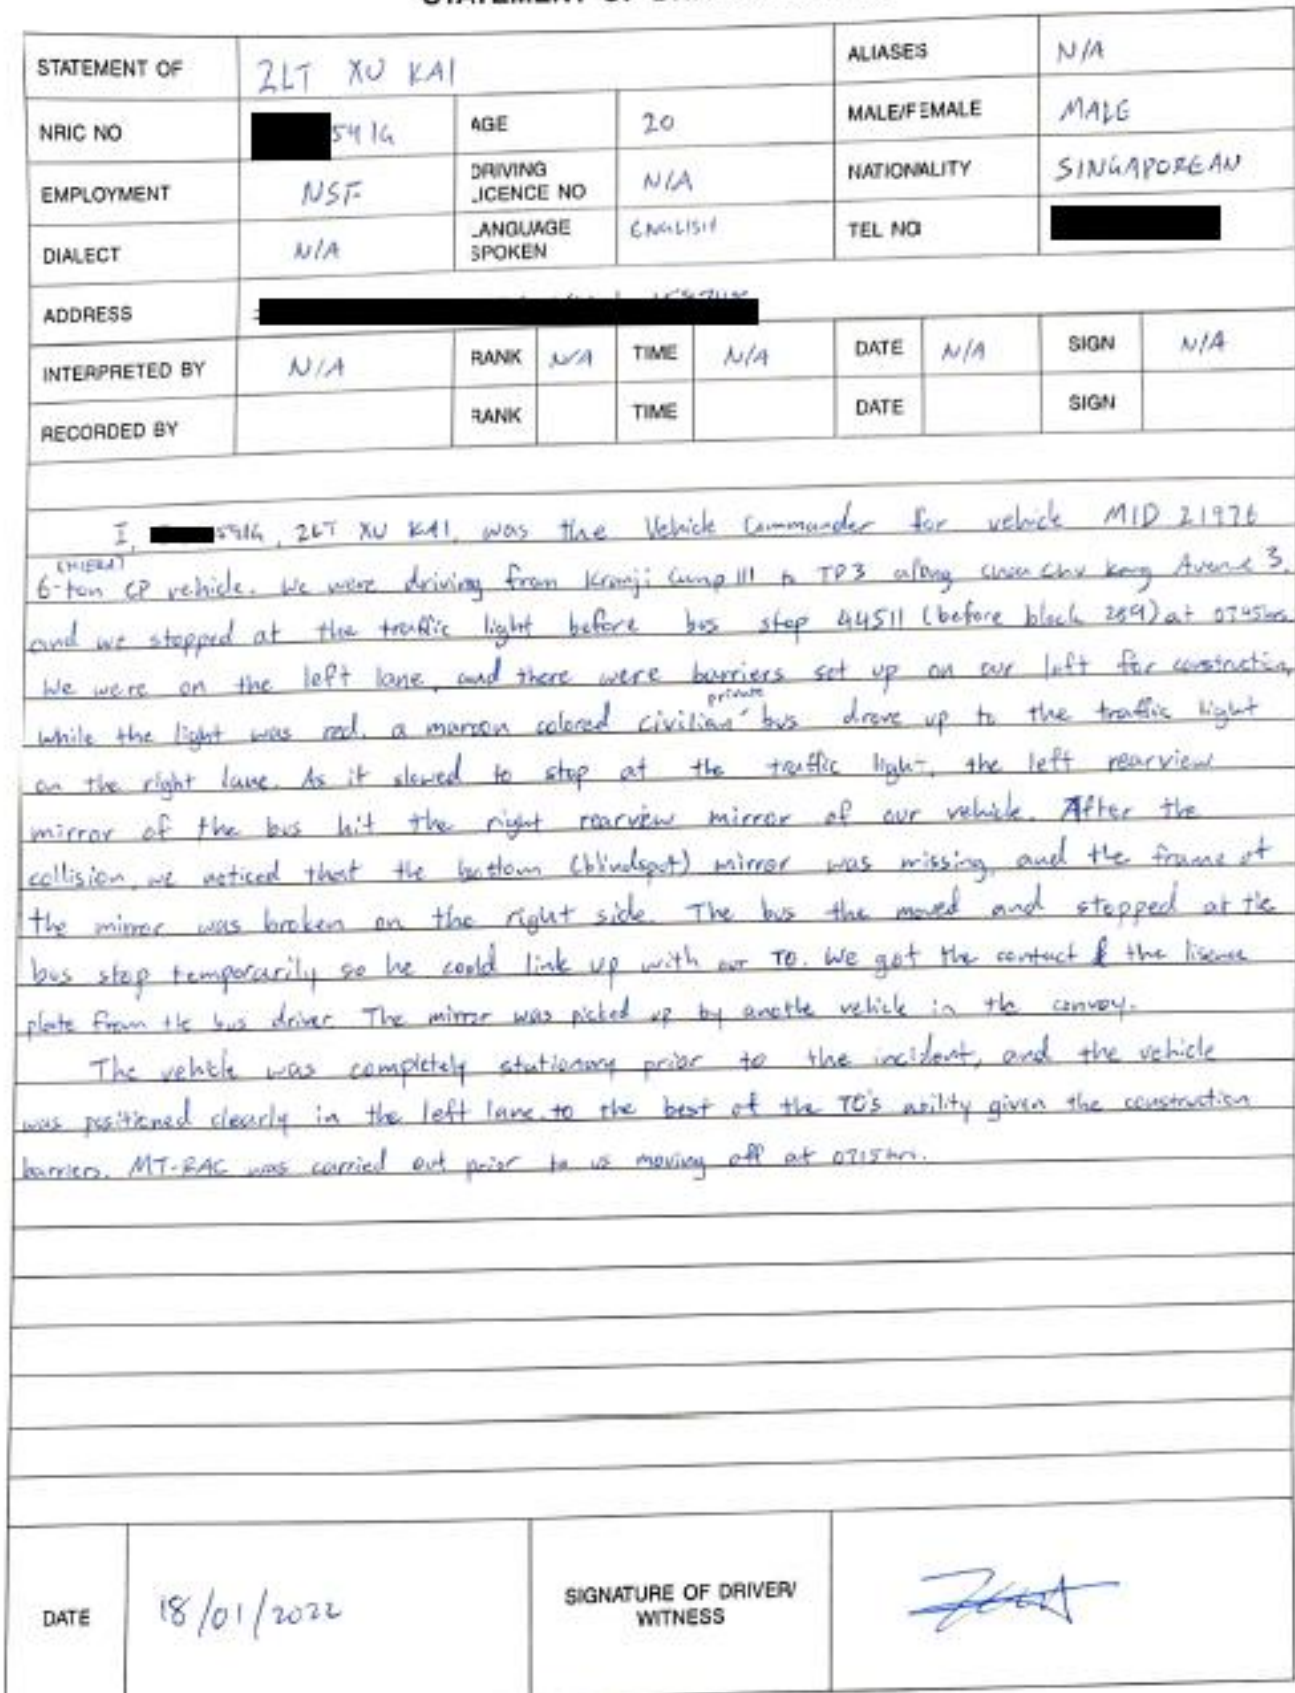 STATEMENT OF
STATEMENT OF 2LT XU KAI ALIASES N/A
NRIC NO 541G AGE 20 MALE/FEMALE MALE
EMPLOYMENT NSF DRIVING LICENCE NO N/A NATIONALITY SINGAPOREAN
DIALECT N/A LANGUAGE SPOKEN ENGLISH TEL NO
ADDRESS
INTERPRETED BY N/A RANK N/A TIME N/A DATE N/A SIGN N/A
RECORDED BY RANK TIME DATE SIGN
I, 541G, 2LT XU KAI, was the Vehicle Commander for vehicle MID 21976
6-ton CP vehicle. We were driving from Kranji Camp III to TP3 along Choa Chu Kang Avenue 3,
and we stopped at the traffic light before bus stop 44511 (before block 289) at 0745hrs
We were on the left lane, and there were barriers set up on our left for construction,
while the light was red, a maroon colored civilian private bus drove up to the traffic light
on the right lane. As it slowed to stop at the traffic light, the left rearview
mirror of the bus hit the right rearview mirror of our vehicle. After the
collision, we noticed that the bottom (blindspot) mirror was missing, and the frame of
the mirror was broken on the right side. The bus the moved and stopped at the
bus stop temporarily so he could link up with our TO. We got the contact & the lisence
plate from the bus driver. The mirror was picked up by anothe vehicle in the convoy.
The vehicle was completely stationary prior to the incident, and the vehicle
was positioned clearly in the left lane to the best of the TO's ability given the construction
barriers. MT-RAC was carried out prior to us moving off at 0715hrs.
DATE 18/01/2022 SIGNATURE OF DRIVER/
WITNESS